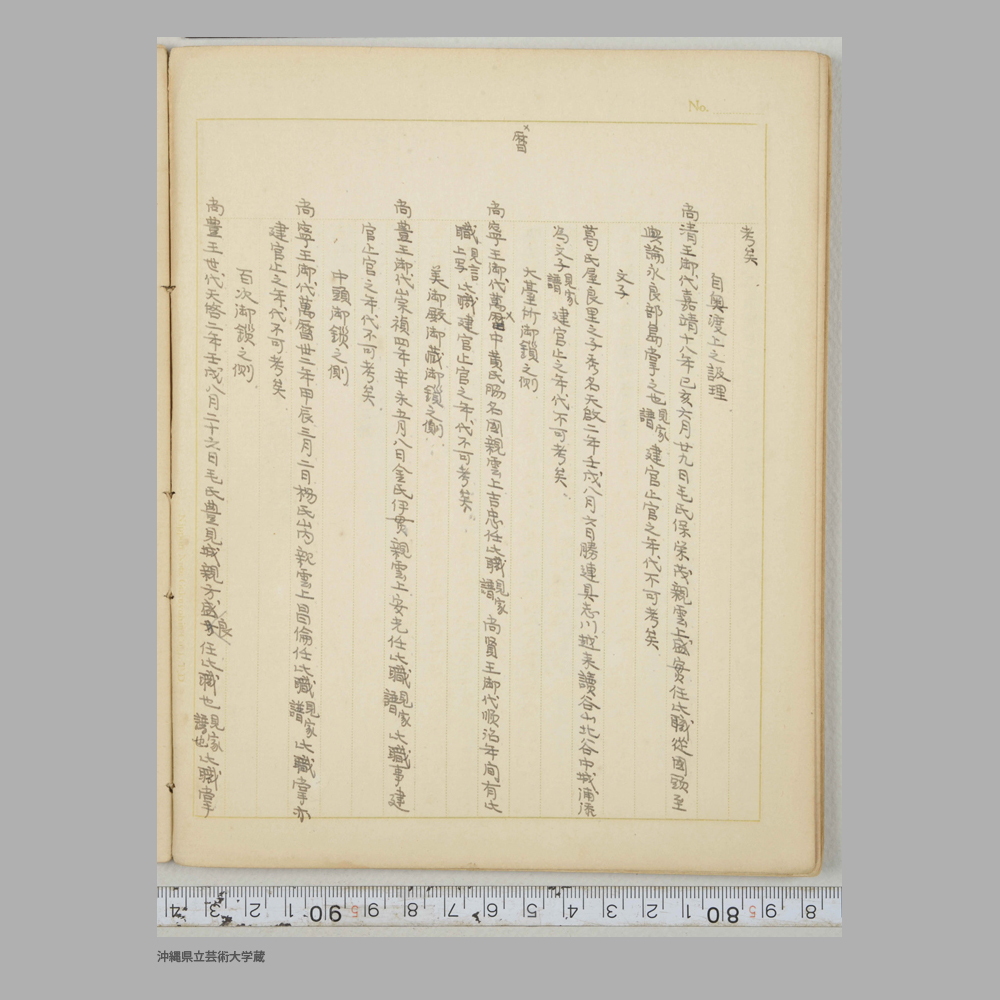 No.
暦
考矣
自奥渡上之設理
尚清王御代嘉靖十八年己亥六月廿九日毛氏保栄茂親雲上盛實任此職從国頭至
與論永良部島掌之也見家譜建官止官之年代不可考矣
文子
葛氏屋良里之子秀名天啟二年壬戌八月六日勝連具志川越来讀谷山北谷中城浦添
為文子見家譜建官止之年代不可考矣
大臺所御鎖之側
尚寧王御代萬暦中黄氏賜名国親雲上吉忠任此職見家譜尚賢王御代順治年間有此
職見言上写此職建官止官之年代不可考矣
美御殿御蔵御鎖之側
尚豊王御代崇禎四年辛未五月八日金氏伊貫親雲上安光任此職見家譜此職事建
官止官之年代不可考矣
中頭御鎖之側
尚寧王御代萬暦廿二年甲辰三月二日楊氏山内親雲上昌倫任此職見家譜此職掌亦
建官止之年代不可考矣
百次御鎖之側
尚豊王世代天啓二年壬戌八月二十六日毛氏豊見城親方盛良任此職也見家譜也此職掌
4 3 2 1 90 9 8 7 6 5 4 3 2 1 80 9 8
沖縄県立芸術大学蔵